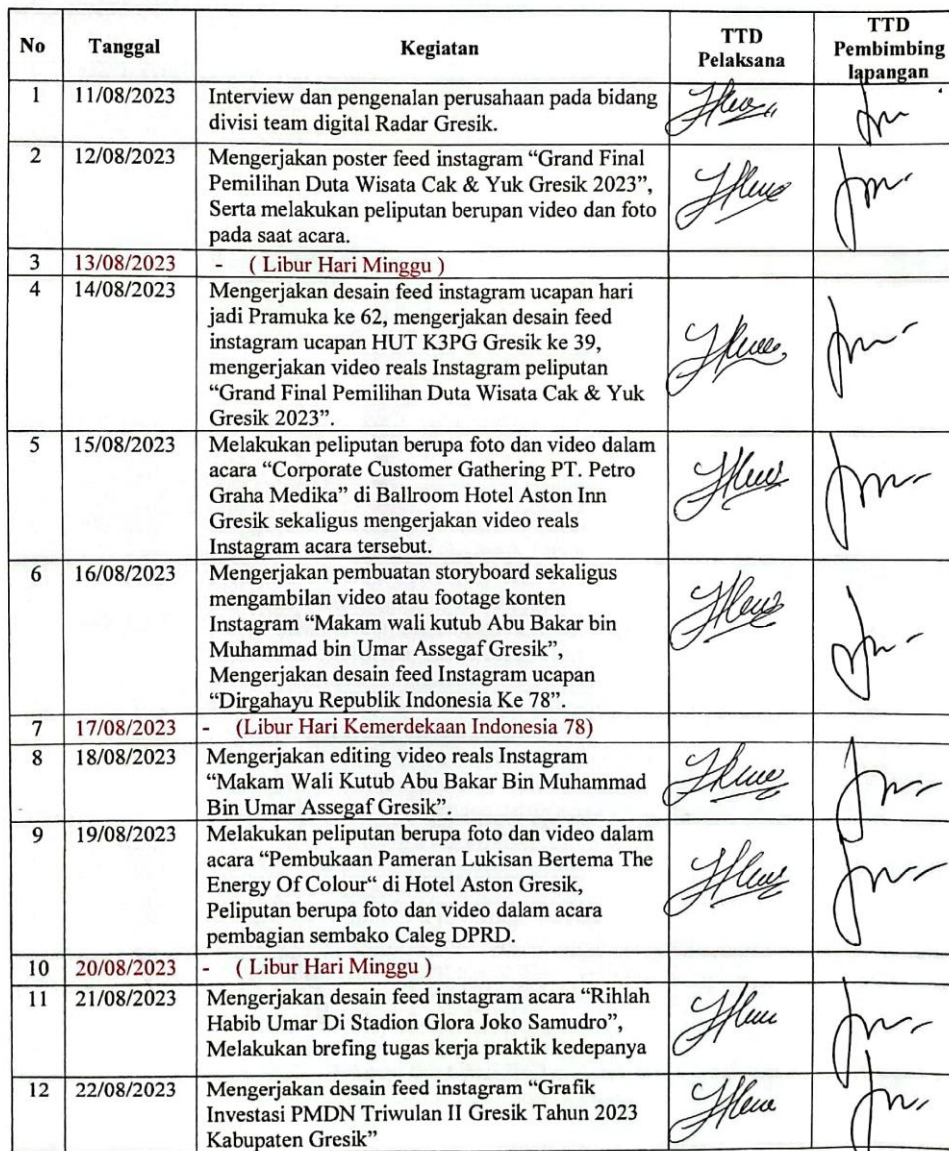 No Tanggal Kegiatan TTD Pelaksana TTD Pembimbing lapangan
1 11/08/2023 Interview dan pengenalan perusahaan pada bidang
divisi team digital Radar Gresik.
2 12/08/2023 Mengerjakan poster feed instagram “Grand Final
Pemilihan Duta Wisata Cak & Yuk Gresik 2023”,
Serta melakukan peliputan berupan video dan foto
pada saat acara.
3 13/08/2023 - ( Libur Hari Minggu )
4 14/08/2023 Mengerjakan desain feed instagram ucapan hari
jadi Pramuka ke 62, mengerjakan desain feed
instagram ucapan HUT K3PG Gresik ke 39,
mengerjakan video reals Instagram peliputan
“Grand Final Pemilihan Duta Wisata Cak & Yuk
Gresik 2023”.
5 15/08/2023 Melakukan peliputan berupa foto dan video dalam
acara “Corporate Customer Gathering PT. Petro
Graha Medika” di Ballroom Hotel Aston Inn
Gresik sekaligus mengerjakan video reals
Instagram acara tersebut.
6 16/08/2023 Mengerjakan pembuatan storyboard sekaligus
mengambilan video atau footage konten
Instagram “Makam wali kutub Abu Bakar bin
Muhammad bin Umar Assegaf Gresik”,
Mengerjakan desain feed Instagram ucapan
“Dirgahayu Republik Indonesia Ke 78”.
7 17/08/2023 - (Libur Hari Kemerdekaan Indonesia 78)
8 18/08/2023 Mengerjakan editing video reals Instagram
“Makam Wali Kutub Abu Bakar Bin Muhammad
Bin Umar Assegaf Gresik”.
9 19/08/2023 Melakukan peliputan berupa foto dan video dalam
acara “Pembukaan Pameran Lukisan Bertema The
Energy Of Colour“ di Hotel Aston Gresik,
Peliputan berupa foto dan video dalam acara
pembagian sembako Caleg DPRD.
10 20/08/2023 - ( Libur Hari Minggu )
11 21/08/2023 Mengerjakan desain feed instagram acara “Rihlah
Habib Umar Di Stadion Glora Joko Samudro”,
Melakukan brefing tugas kerja praktik kedepanya
12 22/08/2023 Mengerjakan desain feed instagram “Grafik
Investasi PMDN Triwulan II Gresik Tahun 2023
Kabupaten Gresik”